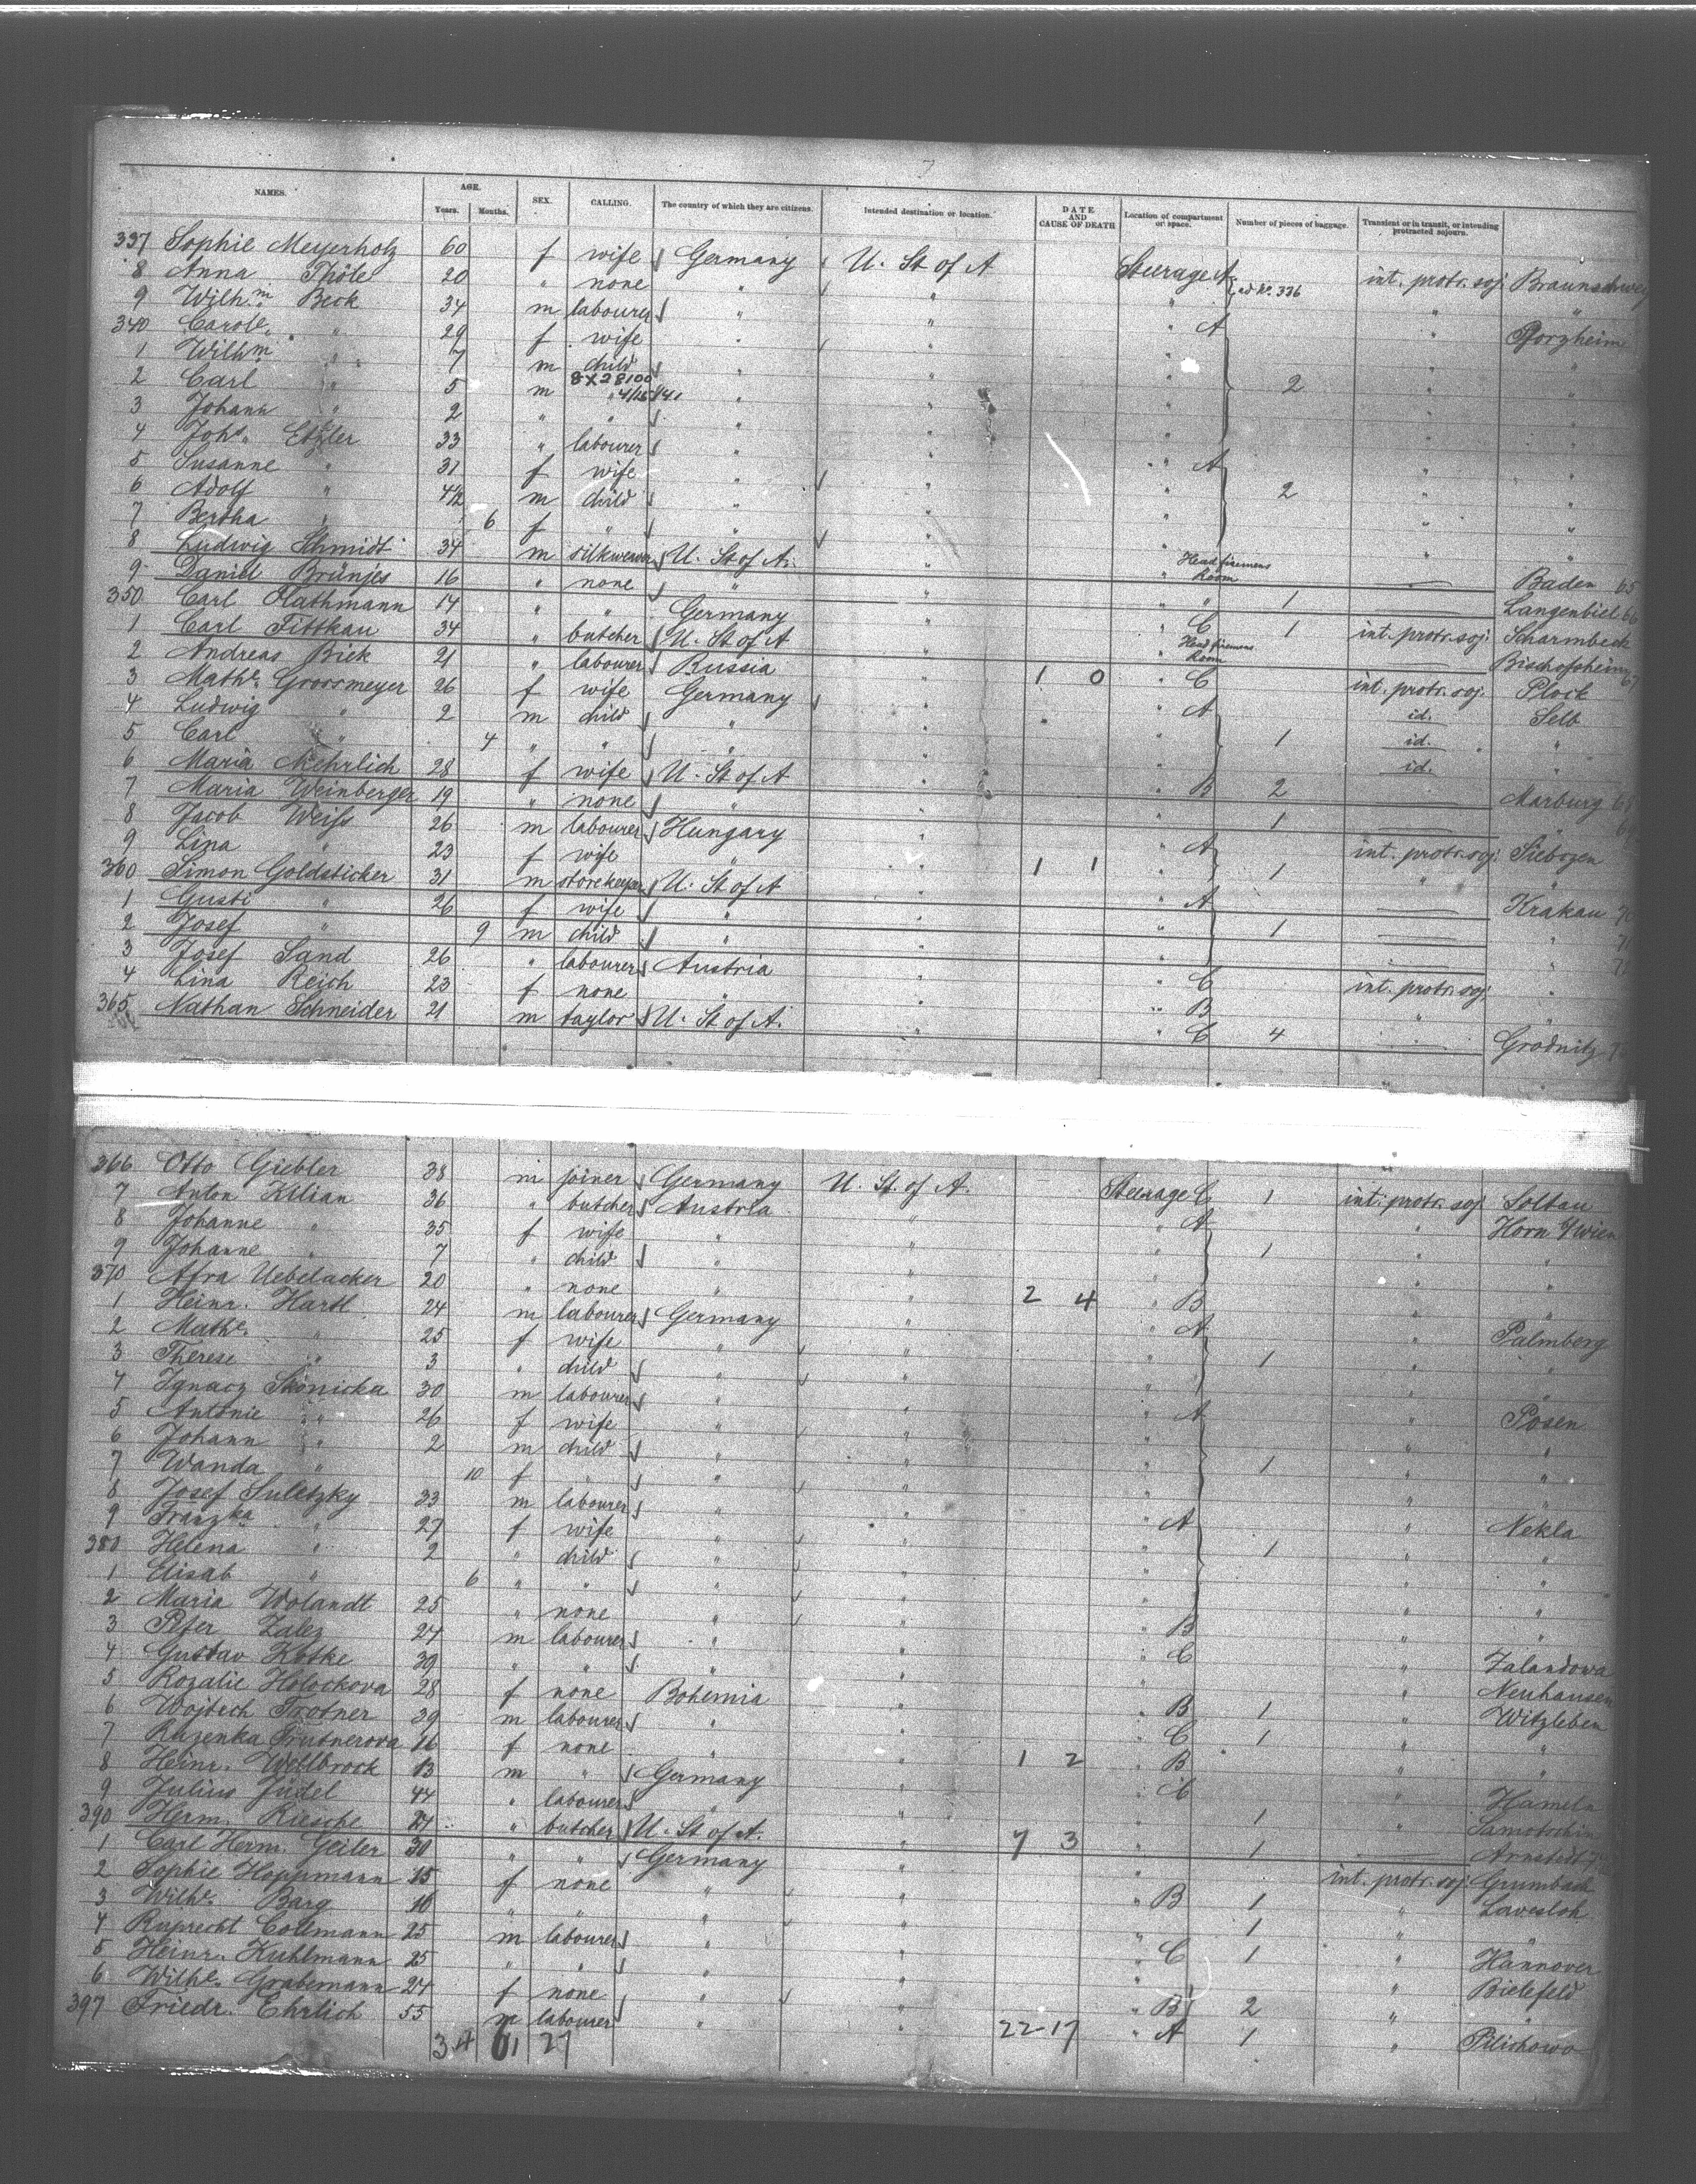 7
NAMES. AGE. Years. Months. SEX. CALLING. The country of which they are citizens. Intended destination or location. DATE AND CAUSE OF DEATH Location of compartment or space. Number of pieces of baggage. Transient or in transit, or intending protracted sojourn.
337 Sophie Meyerholz 60 f wife Germany U. St of A Steerage A int. protr. soj. Braunschweig
8 Anna Thöle 20 " none " " " ad No. 336 " "
9 Wilhm. Beck 34 m labourer " " " A " Pforzheim
340 Carole. " 29 f wife " " " " "
1 Wilhm " 7 m child " " " 2 " "
2 Carl " 5 m 8X28100 " 4/15/41 " " " "
3 Johann " 2 " " " " " "
4 Johs. Etzler 33 " labourer " " " A " "
5 Susanne " 31 f wife " " " 2 " "
6 Adolf " 4/12 m child " " " " "
7 Bertha " 6 f " " " " " "
8 Ludwig Schmidt 34 m silkweaver U. St of A. " " Head firemens Room — Baden 65
9 Daniel Brünjes 16 " none " " " " 1 — Langenbiel 66
350 Carl Hathmann 14 " " Germany " " C 1 int. protr. soj. Scharmbeck
1 Carl Fittkau 34 " butcher U. St of A " " Head firemens Room — Bischofsheim 67
2 Andreas Biek 21 " labourer Russia " 1 0 " C int. protr. soj. Plock
3 Mathe. Goosmeyer 26 f wife Germany " " A id. Selb
4 Ludwig " 2 m child " " " 1 id. "
5 Carl " 4 " " " " " id. "
6 Maria Mehrlich 28 f wife U. St of A " " B 2 — Marburg 68
7 Maria Weinberger 19 " none " " " 1 — " 69
8 Jacob Weiss 26 m labourer Hungary " " A int. protr. soj. Siebozen
9 Lina " 23 f wife " " 1 1 " 1 " "
360 Simon Goldsticker 31 m storekeeper U. St of A " " A — Krakau 70
1 Gusti " 26 f wife " " " 1 — " 71
2 Josef " 9 m child " " " — " 72
3 Josef Sand 26 " labourer Austria " " C int. protr. soj. "
4 Lina Reich 23 f none " " " B " "
365 Nathan Schneider 21 m taylor U. St of A. " " C 4 — Grodnitz
366 Otto Giebler 38 m joiner Germany U. St. of A. Steerage C 1 int. protr. soj. Soltau
7 Anton Kilian 36 " butcher Austria " " A " Horn
8 Johanne " 35 f wife " " " 1 " "
9 Johanne " 7 " child " " " " "
370 Afra Uebelacker 20 " none " " 2 4 " B " "
1 Heinr. Hartl 24 m labourer Germany " " A " Palmberg
2 Mathe. " 25 f wife " " " 1 " "
3 Therese " 3 " child " " " " "
4 Ignacz Skonicka 30 m labourer " " " A " Posen
5 Antonie " 26 f wife " " " " "
6 Johann " 2 m child " " " 1 " "
7 Wanda " 10 f " " " " " "
8 Josef Suletzky 33 m labourer " " " A " Nekla
9 Franzka " 27 f wife " " " 1 " "
380 Helena " 2 " child " " " " "
1 Elisab " 6 " " " " " " "
2 Maria Wolandt 25 " none " " " B " "
3 Peter Zalez 24 m labourer " " " C " Zalandowa
4 Gustav Kotke 39 " " " " " " Neuhausen
5 Rozalie Holockova 28 f none Bohemia " " B 1 " Witzleben
6 Wojtech Trotner 39 m labourer " " " C 1 " "
7 Razenka Trutnerova 16 f none " " 1 2 " B " "
8 Heinr. Wellbrock 13 m " Germany " " C " Hameln
9 Julius Jüdel 44 " labourer " " " 1 " Samotschin
390 Herm. Riesche 24 " butcher U. St of A. " 7 3 " 1 — Arnstedt
1 Carl Herm. Geiler 30 " " Germany " " int. protr. soj. Grumbach
2 Sophie Hoppmann 15 f none " " " B 1 " Lavesloh
3 Wilhe. Barg 16 " " " " " 1 " "
4 Ruprecht Collmann 25 m labourer " " " C 1 " Hannover
5 Heinr. Kuhlmann 25 " " " " " " Bielefeld
6 Wilhe. Grabemann 24 f none " " " B 2 " "
397 Friedr. Ehrlich 55 m labourer " " " A 1 " Pilichowo
34 61 27 22-17